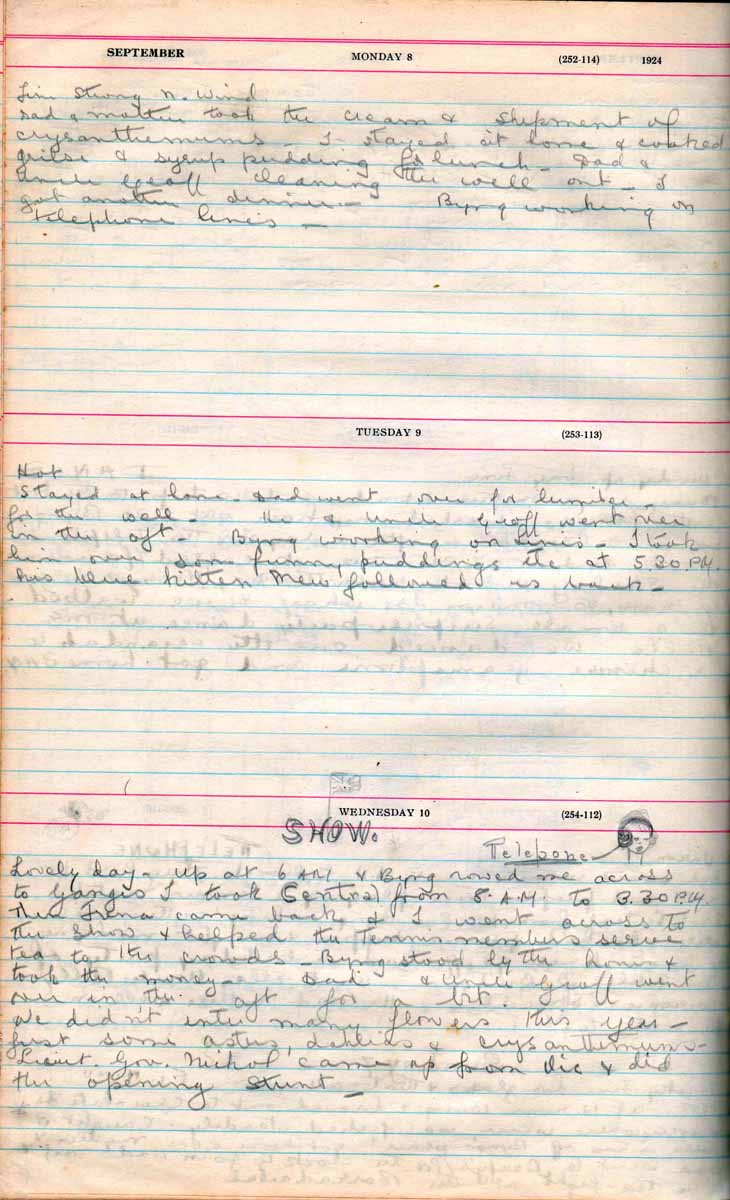 SEPTEMBER MONDAY 8 (252-114) 1924
Fine strong N. wind.
Dad & mother took the cream & shipment of
crysanthemums - I stayed at home & cooked
grilse & syrup pudding for lunch - Dad &
Uncle Geoff cleaning the well out - I
got another dinner - Byng working on
telephone lines -
TUESDAY 9 (253-113)
Hot
Stayed at home - Dad went over for lumber -
for the well - He & Uncle Geoff went over
in the aft - Byng working on lines - I took
him over some funny puddings etc at 5.30.P.M.
his blue kitten Mew followed us back -
WEDNESDAY 10 (254-112)
SHOW.
Telepone
Lovely day - up at 6 AM & Byng rowed me across
to Ganges I took Central from 8. A.M. to 3.30 P.M.
Then came back & I went across to
the Show & helped the Tennis members serve
tea to the crowds - Byng stood by the &
took the money - Dad & Uncle Geoff went
over in the aft for a bit.
We didn't enter many flowers this year -
just some asters, dahlias & crysanthemums -
Lieut. Gov. Nichol came up from Vic & did
the opening stunt -